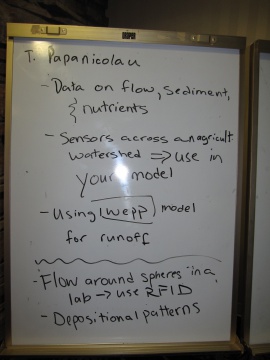 T. Papanicolau
- Data on flow, sediment,
& nutrients
- Sensors across an agricult
watershed ⇒ use in
your model
- Using WEPP model
for runoff
- Flow around spheres in a
lab → use RFID
- Depositional patterns